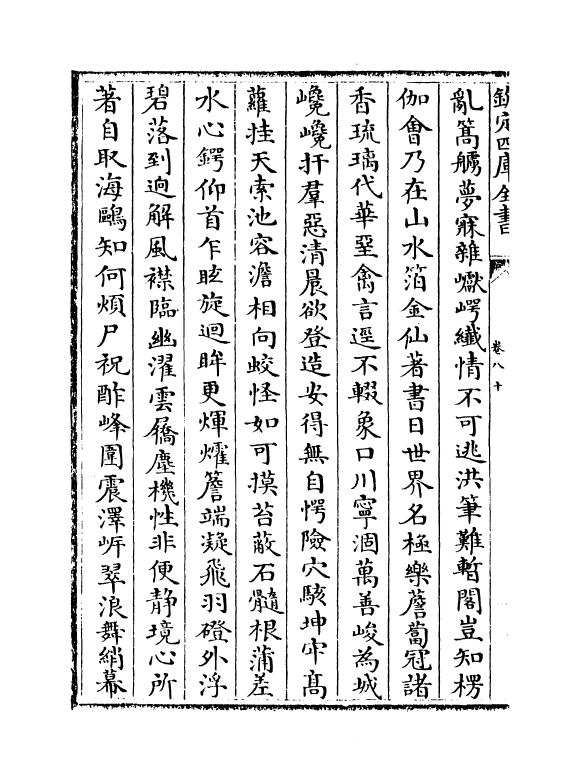 欽定四庫全書
卷八十
亂篙艣夢寐雜巘崿纖情不可逃洪筆難暫閣豈知楞
伽會乃在山水箔金仙著書日世界名極樂薝蔔冠諸
香琉璃代華堊禽言逕不輟象口川寧涸萬善峻為城
巉巉扞羣惡清晨欲登造安得無自愕險穴駭坤牢高
蘿挂天索池容澹相向蛟怪如可摸苔蔽石髓根蒲差
水心鍔仰首乍眩旋迴眸更煇爚簷端凝飛羽磴外浮
碧落到逈解風襟臨幽濯雲屩塵機性非便静境心所
著自取海鷗知何煩尸祝酢峰圍震澤岍翠浪舞綃幕